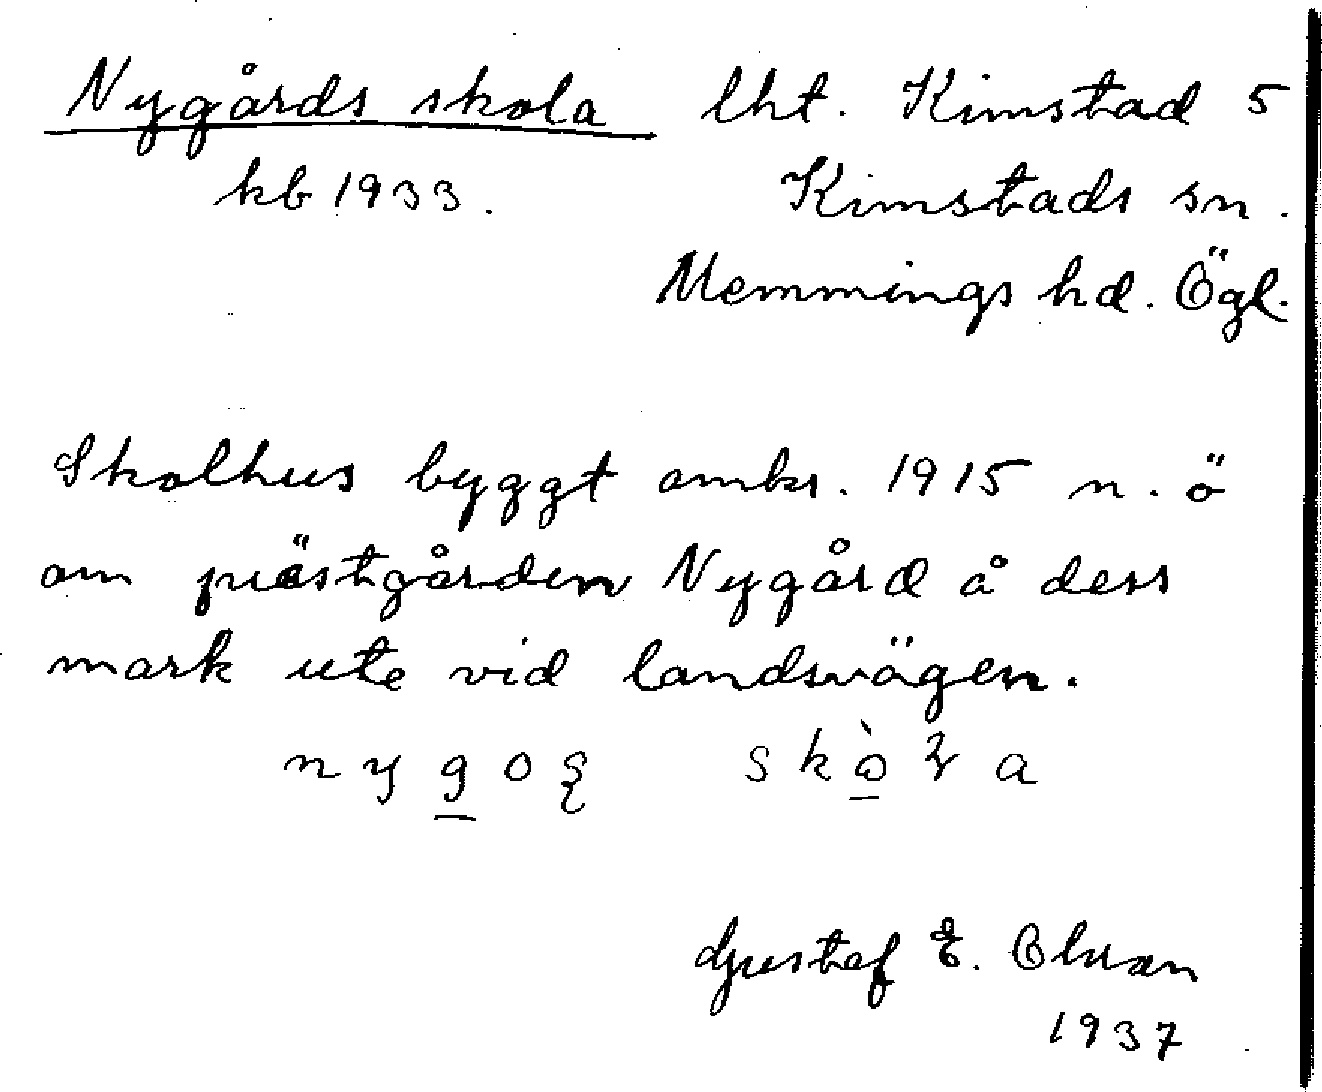 Nygårds skola lht. Kimstad 5
kb 1933. Kimstads sn.
Memmings hd. Ögl.
Skolhus byggt omkr. 1915 n.ö
om prästgården Nygård å dess
mark ute vid landsvägen.
Gustaf E. Olsson
1937